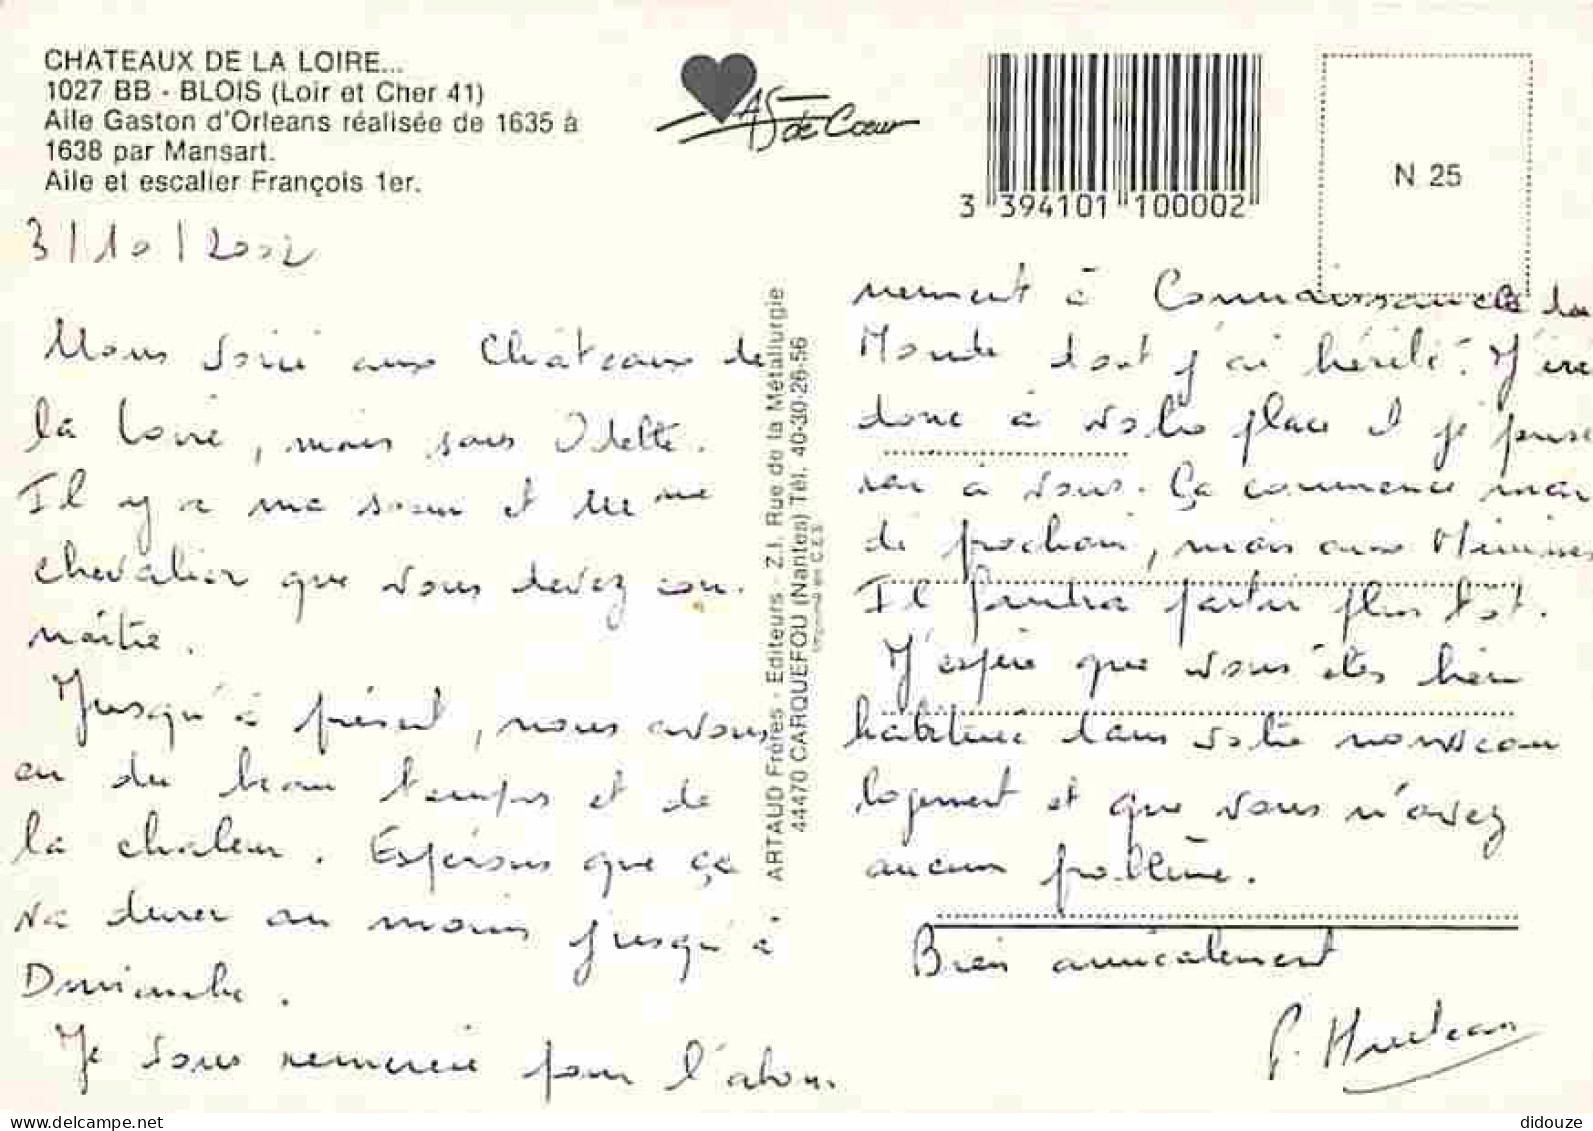 CHATEAUX DE LA LOIRE...
1027 BB - BLOIS (Loir et Cher 41)
Aile Gaston d'Orleans réalisée de 1635 à
1638 par Mansart.
Aile et escalier François 1er.
AS de Cœur
3 394101 100002
N 25
3/10/2002
Nous voici aux Châteaux de
la Loire, mais sans Odette.
Il y a ma sœur et Mme
Chevalier que vous devez con-
naître.
Jusqu'à présent, nous avons
eu du beau temps et de
la chaleur. Espérons que ça
va durer au moins jusqu'à
Dimanche.
Je vous remercie pour l'abon-
ARTAUD Frères - Editeurs - Z.I. Rue de la Métallurgie
44470 CARQUEFOU (Nantes) Tél. 40-30-26-56
Imprimé en C.E.E.
nement à Connaissance du
Monde dont j'ai hérité. J'irai
donc à votre place et je pense
rai à vous. Ça commence mar
di prochain, mais aux Minimes
Il faudra partir plus tôt.
J'espère que vous êtes bien
habitué dans votre nouveau
logement et que vous n'avez
aucun problème.
Bien amicalement